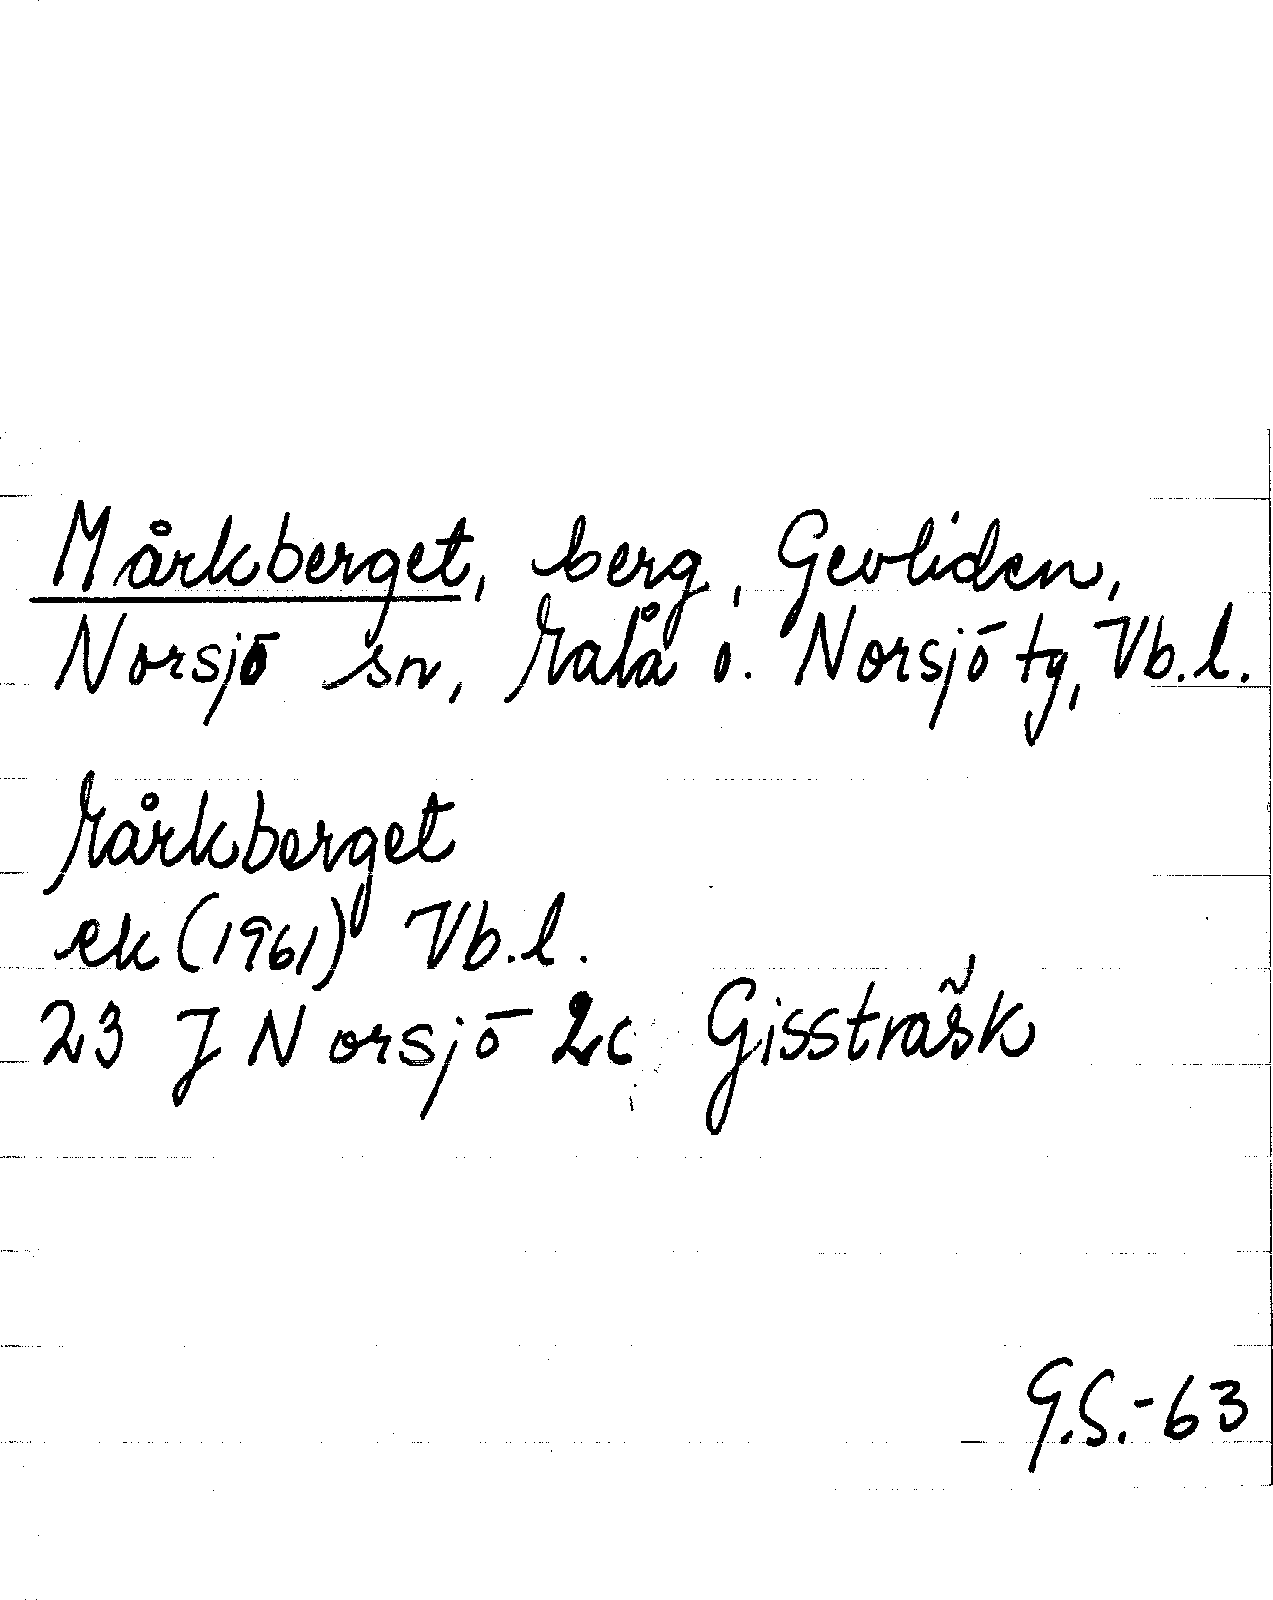 Mårkberget, berg, Gevliden,
Norsjö sn, Malå o. Norsjö tg, Vb.l.
Mårkberget
ek (1961) Vb.l.
23 J Norsjö 2c Gissträsk
G.S.-63